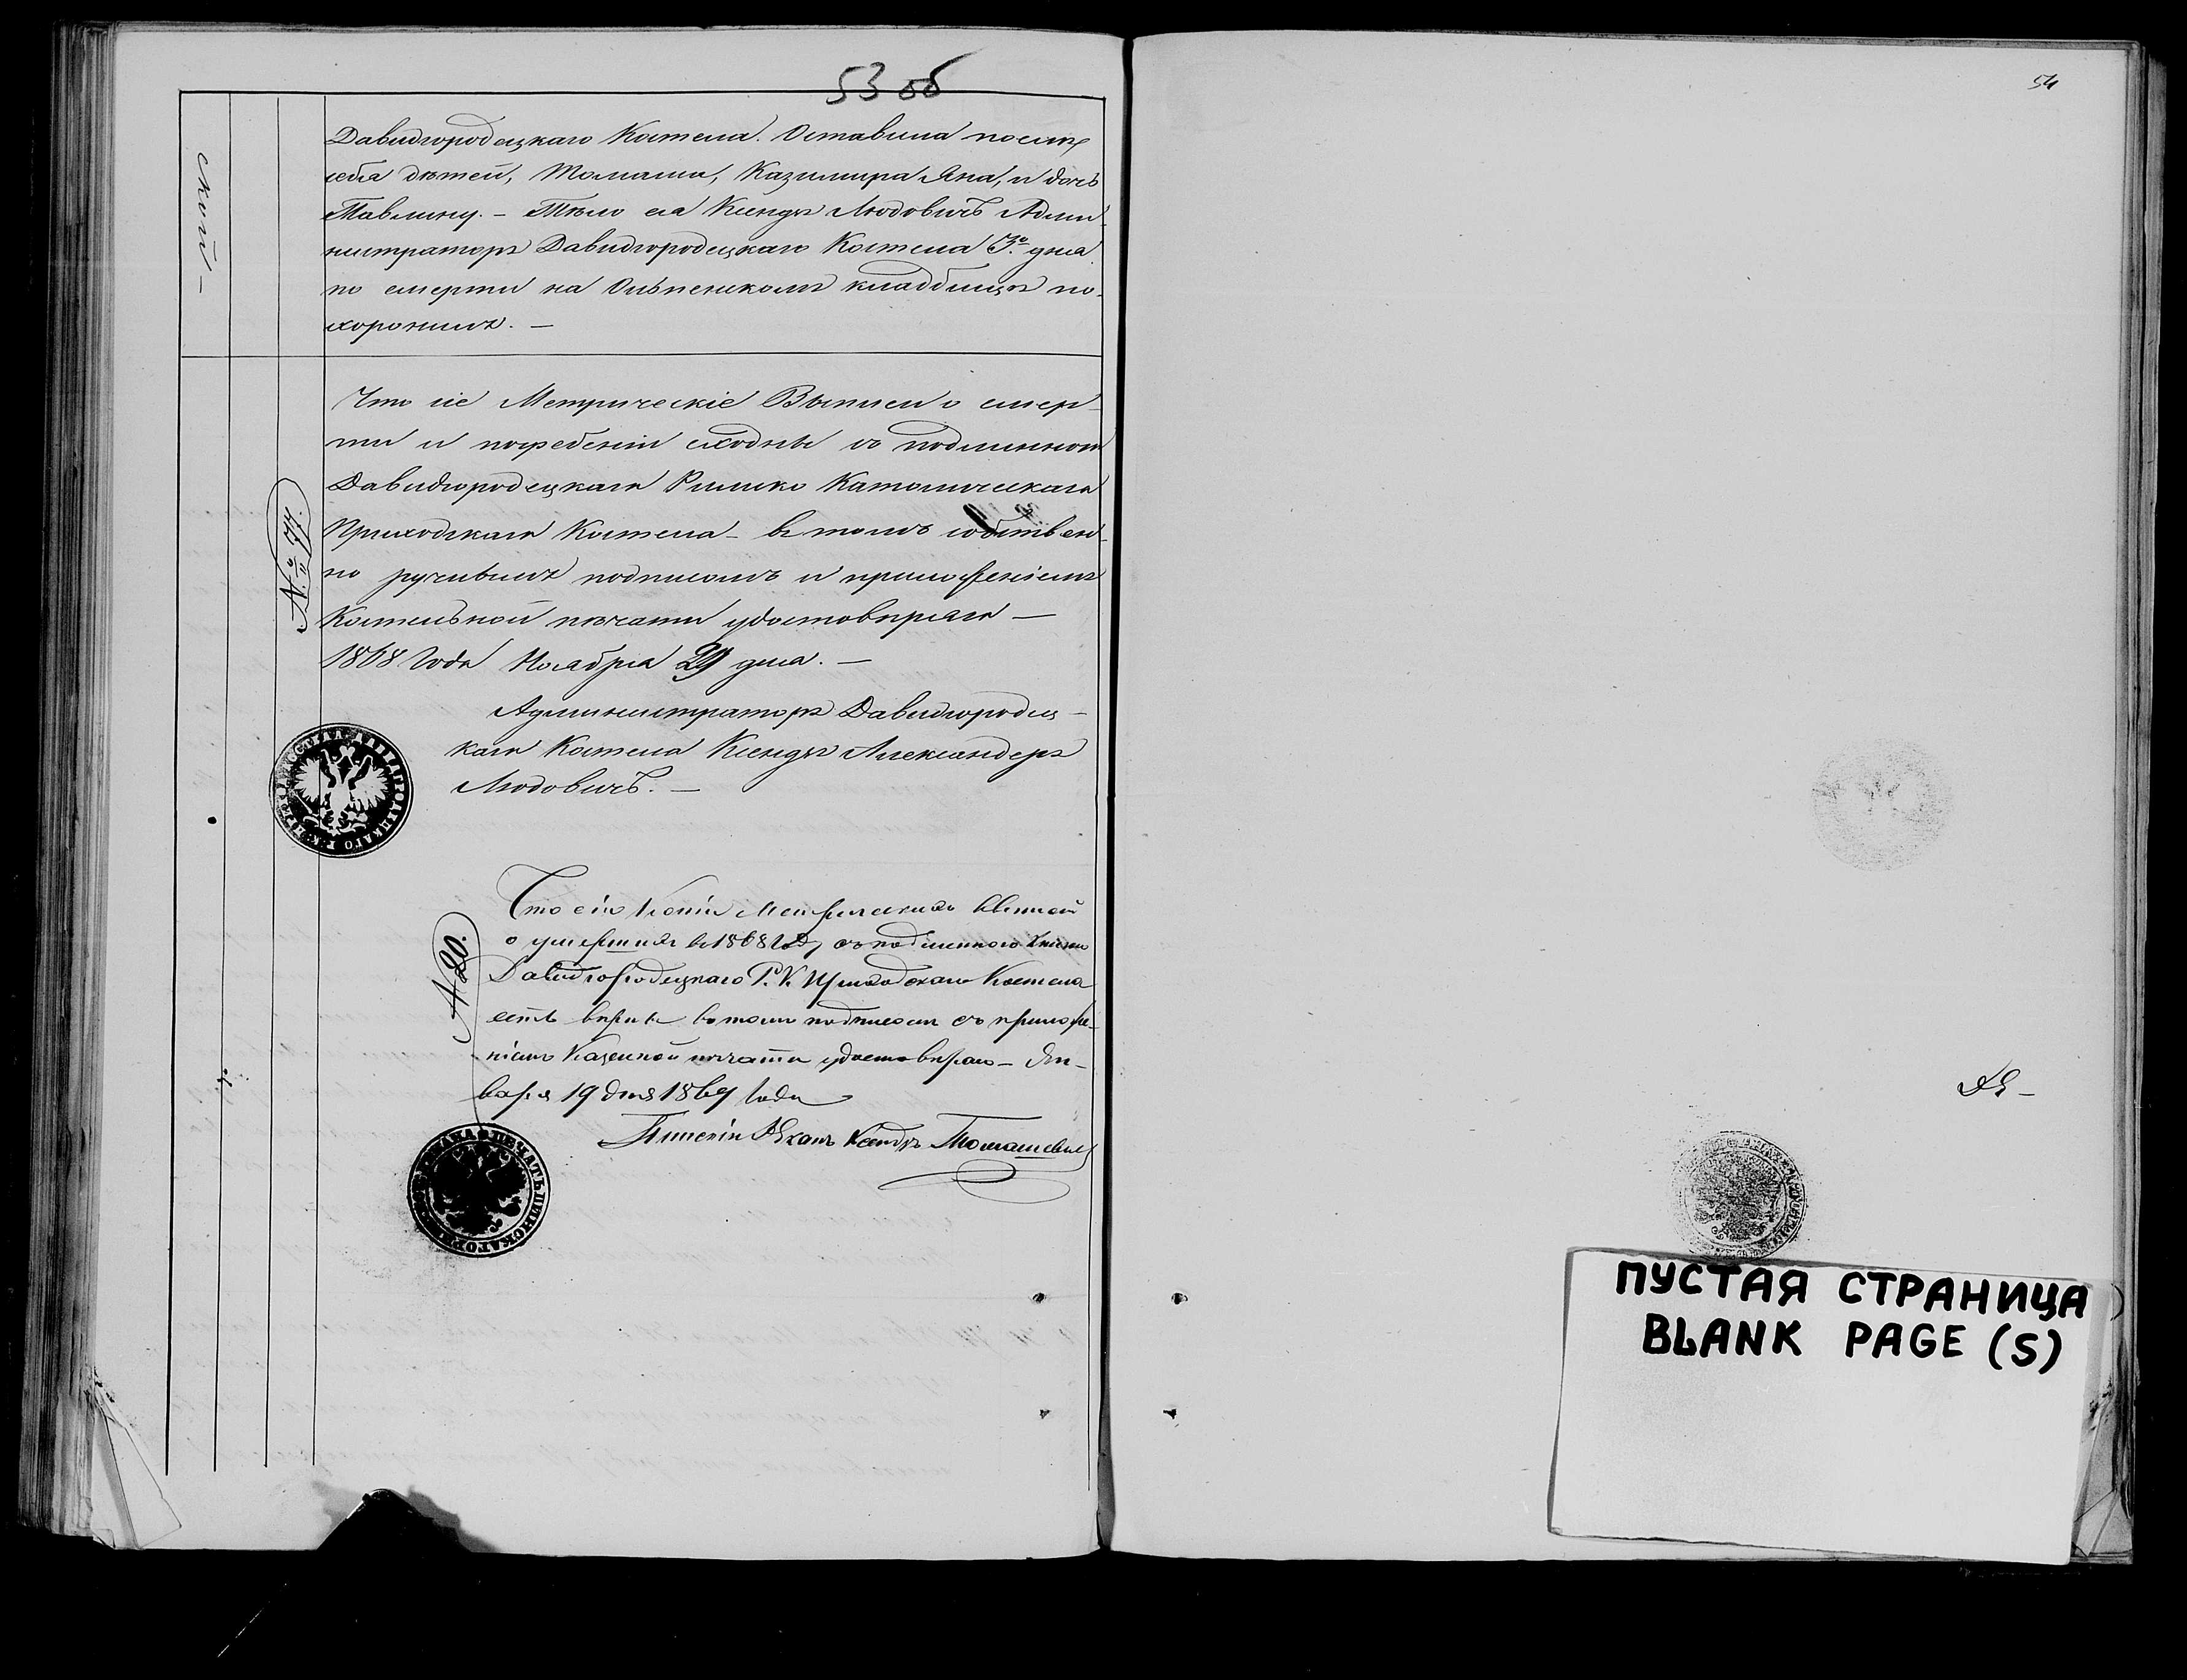 53 об
Давидгородецкаго Костела. Оставила послѣ
себя дѣтей, Томаша, Казимира Яна, и дочь
Павлину. – Тѣло ея Ксендзъ Людовичъ Адми-
нистраторъ Давидгородецкаго Костела 3го дня
по смерти на кладбищѣ по-
хоронилъ. –
ской –
Что сіе Метрическіе Выписи о смер-
ти и погребеніи сходны съ подлинною
Давидгородецкаго Римско Католическаго
Приходскаго Костела – въ томъ собствен-
но ручнымъ подписомъ и приложеніемъ
Костельной печати удостовѣряю –
№ 77.
1868 Года Ноября 29 дня. –
Администраторъ Давидгородец-
каго Костела Ксендзъ Александеръ
Людовичъ. –
Что сія Копія Метрическихъ выписей
о умершихъ въ 1868 году съ подлинною книгою
Давидгородецкаго Р. К. Приходскаго Костела
есть вѣрна въ томъ подписомъ съ приложе-
ніемъ Казенной печати удостовѣряю – Ян-
варя 19 дня 1869 Года
№ 20.
Пинскій Деканъ Ксендзъ Томашевич
54
ПУСТАЯ СТРАНИЦА
BLANK PAGE (S)